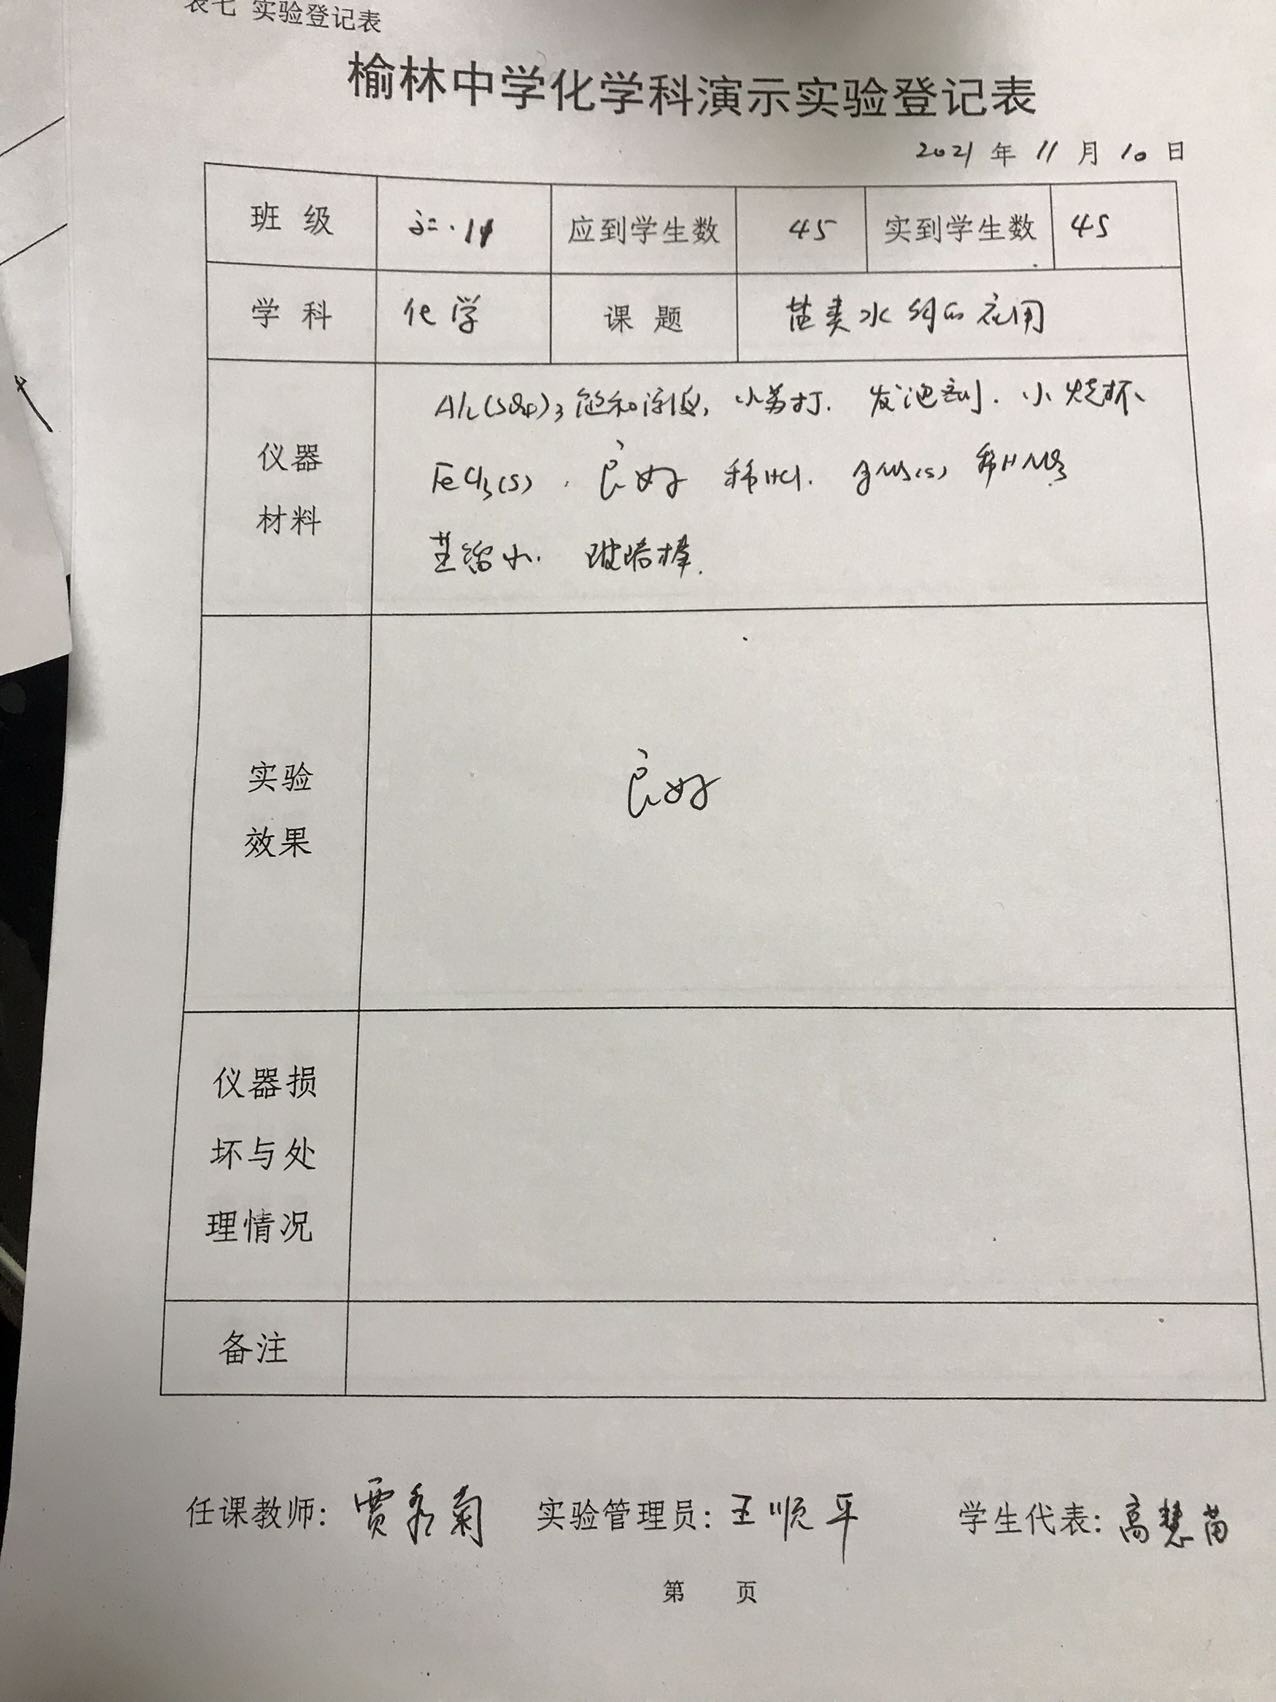 表七 实验登记表
榆林中学化学科演示实验登记表
2021 年 11 月 10 日
班级 应到学生数 45 实到学生数 45
学科 化学 课题 盐类水解的应用
仪器材料
Al2(SO4)3饱和溶液, 小苏打. 发泡剂. 小烧杯、
FeCl3(s). 良好 稀HCl. AgNO3(s) 稀HNO3
蒸馏水. 玻璃棒.
实验效果 良好
仪器损坏与处理情况
备注
任课教师: 贾秀菊 实验管理员: 王顺平 学生代表: 高慧苗
第 页